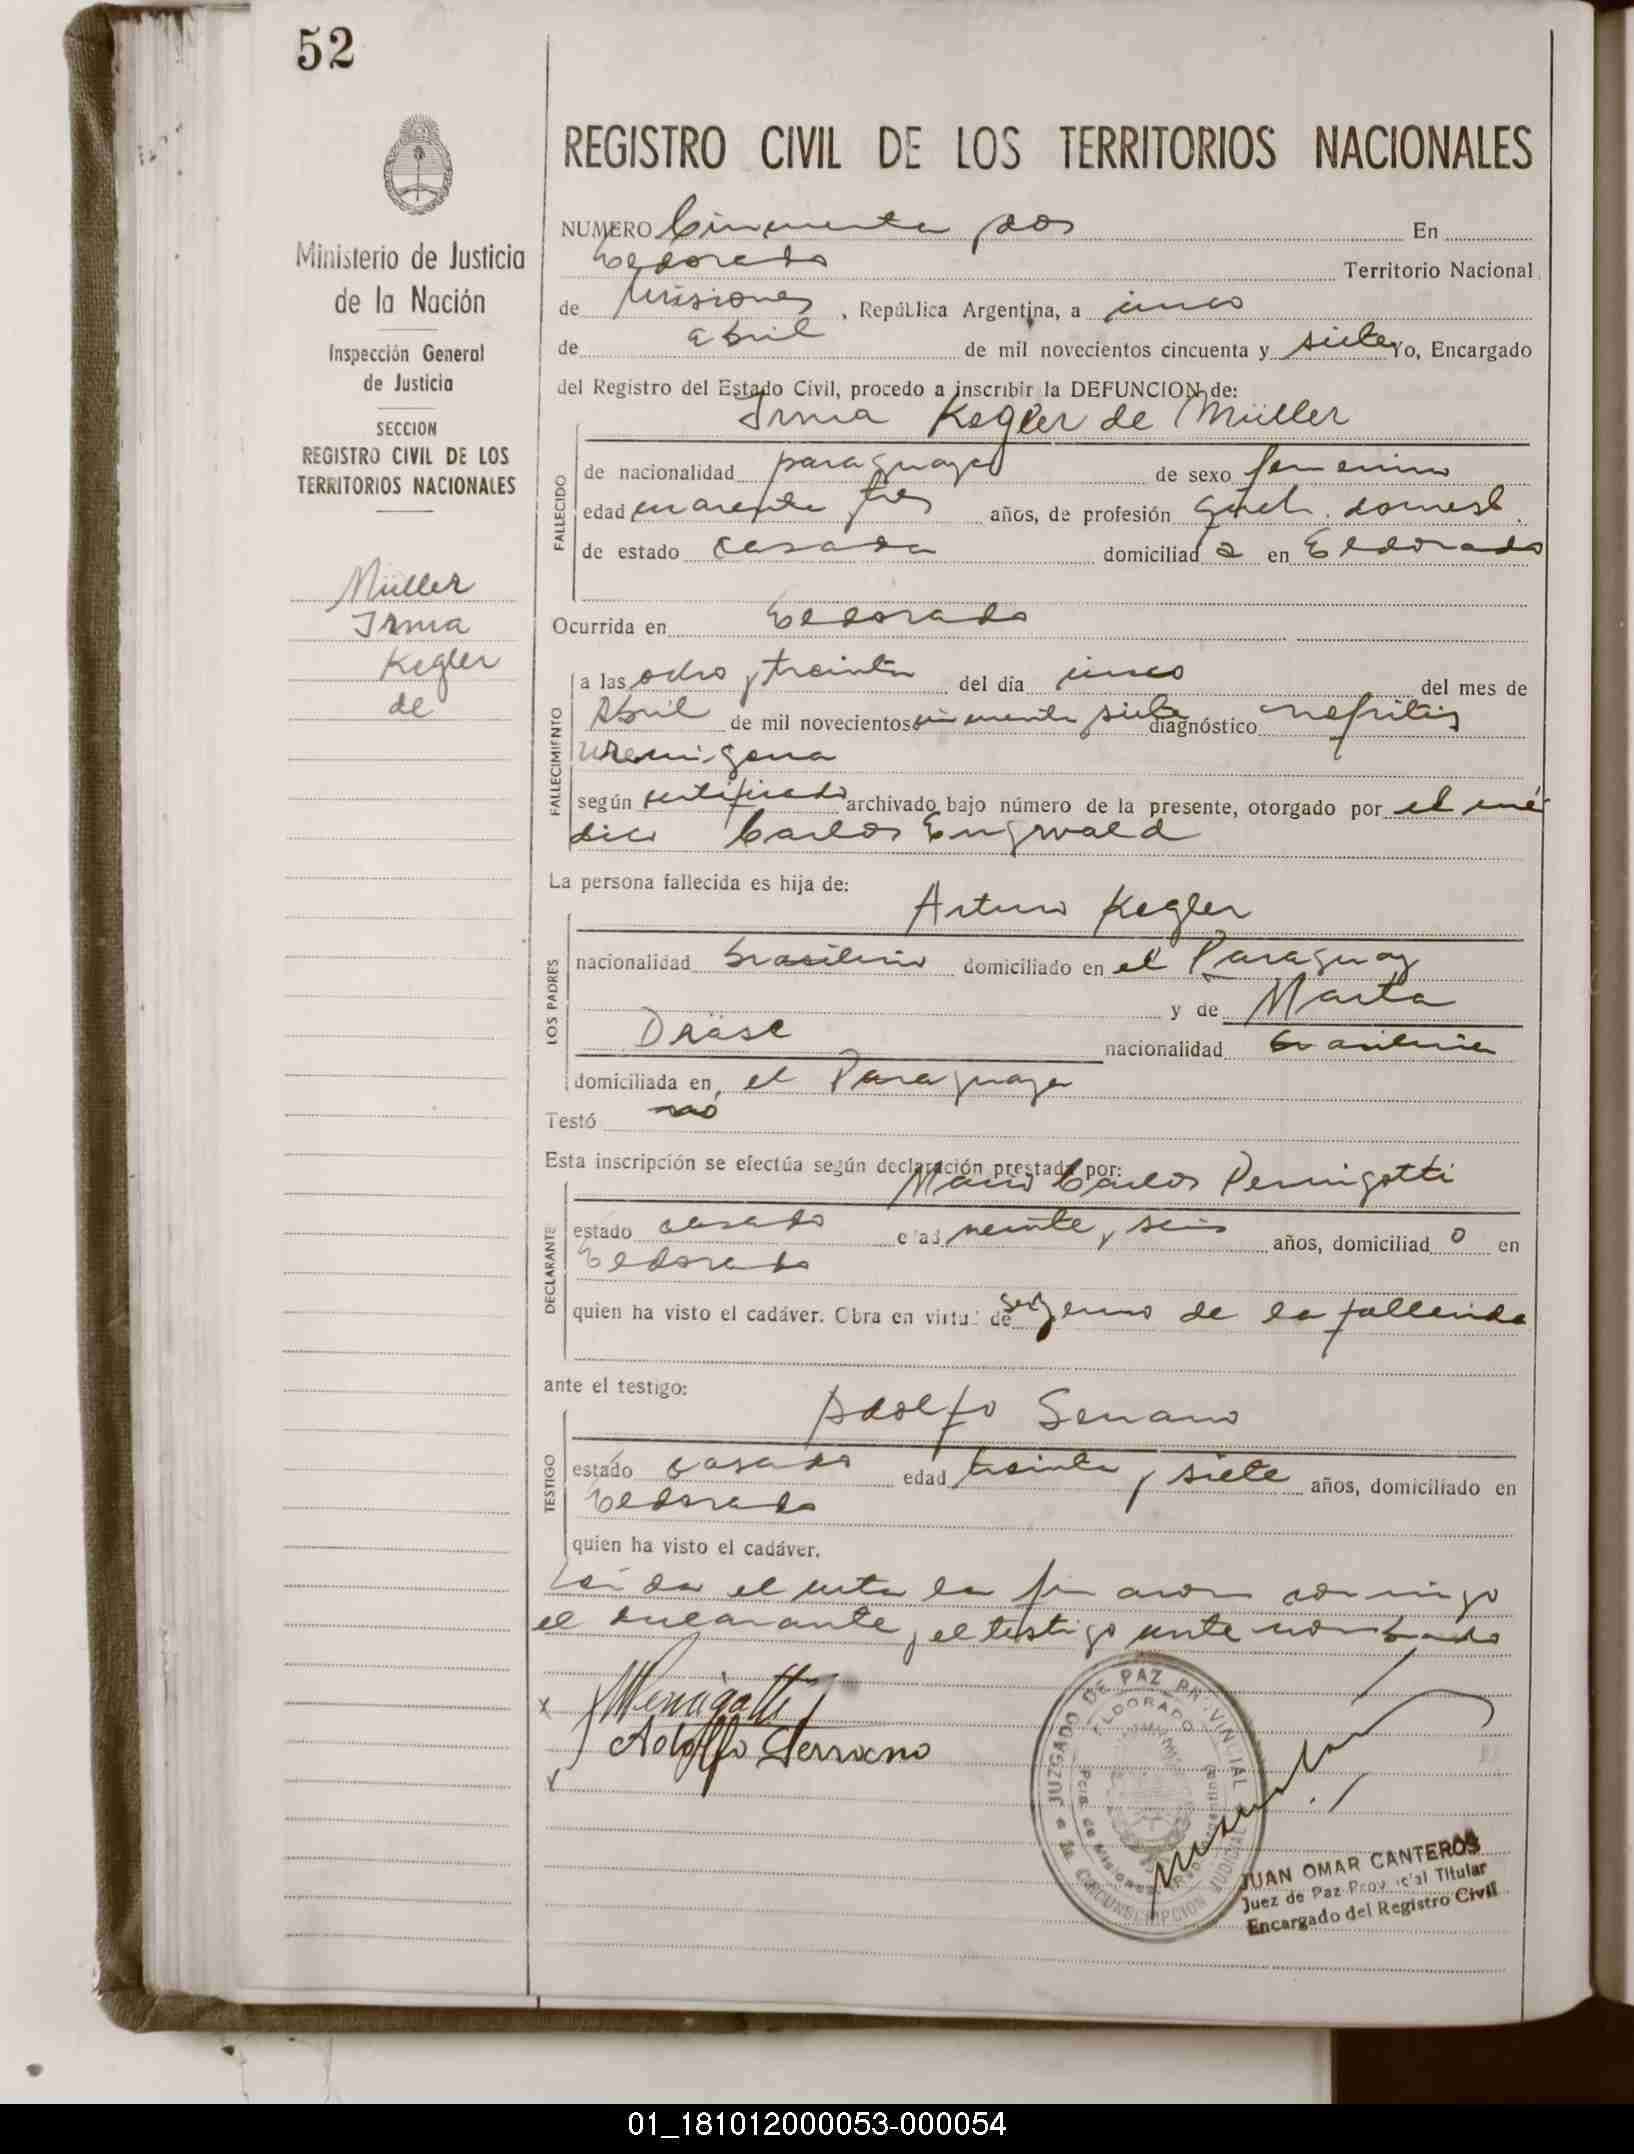 52
Ministerio de Justicia
de la Nación
Inspección General
de Justicia
SECCION
REGISTRO CIVIL DE LOS
TERRITORIOS NACIONALES
Müller
Irma
Kegler
de
REGISTRO CIVIL DE LOS TERRITORIOS NACIONALES
NUMERO Cincuenta y dos En
Eldorado Territorio Nacional
de Misiones, República Argentina, a cinco
de abril de mil novecientos cincuenta y siete Yo, Encargado
del Registro del Estado Civil, procedo a inscribir la DEFUNCION de:
Irma Kegler de Müller
FALLECIDO
de nacionalidad paraguaya de sexo femenino
edad cuarenta y tres años, de profesión queh. domest.
de estado casada domiciliad a en Eldorado
Ocurrida en Eldorado
FALLECIMIENTO
a las ocho y treinta del día cinco del mes de
Abril de mil novecientos cincuenta y siete diagnóstico nefritis
uremigena
según certificado archivado bajo número de la presente, otorgado por el mé-
dico Carlos
La persona fallecida es hija de:
Arturo Kegler
LOS PADRES
nacionalidad brasilero domiciliado en el Paraguay
y de Marta
Dräse nacionalidad brasilera
domiciliada en el Paraguay
Testó no
Esta inscripción se efectúa según declaración prestada por:
Mario Carlos Pernigotti
DECLARANTE
estado casado edad veinte y seis años, domiciliad o en
Eldorado
quien ha visto el cadáver. Obra en virtud de ser yerno de la fallecida
ante el testigo:
Adolfo Serrano
TESTIGO
estado casado edad treinta y siete años, domiciliado en
Eldorado
quien ha visto el cadáver.
Leida el acta la firmaron conmigo
el declarante y el testigo ante nombrado
MPernigotti
Adolfo Serrano
JUZGADO DE PAZ PROVINCIAL
ELDORADO
Pcia. de Misiones
CIRCUNSCRIPCION JUDICIAL
JUAN OMAR CANTEROS
Juez de Paz Provincial Titular
Encargado del Registro Civil
01_181012000053-000054